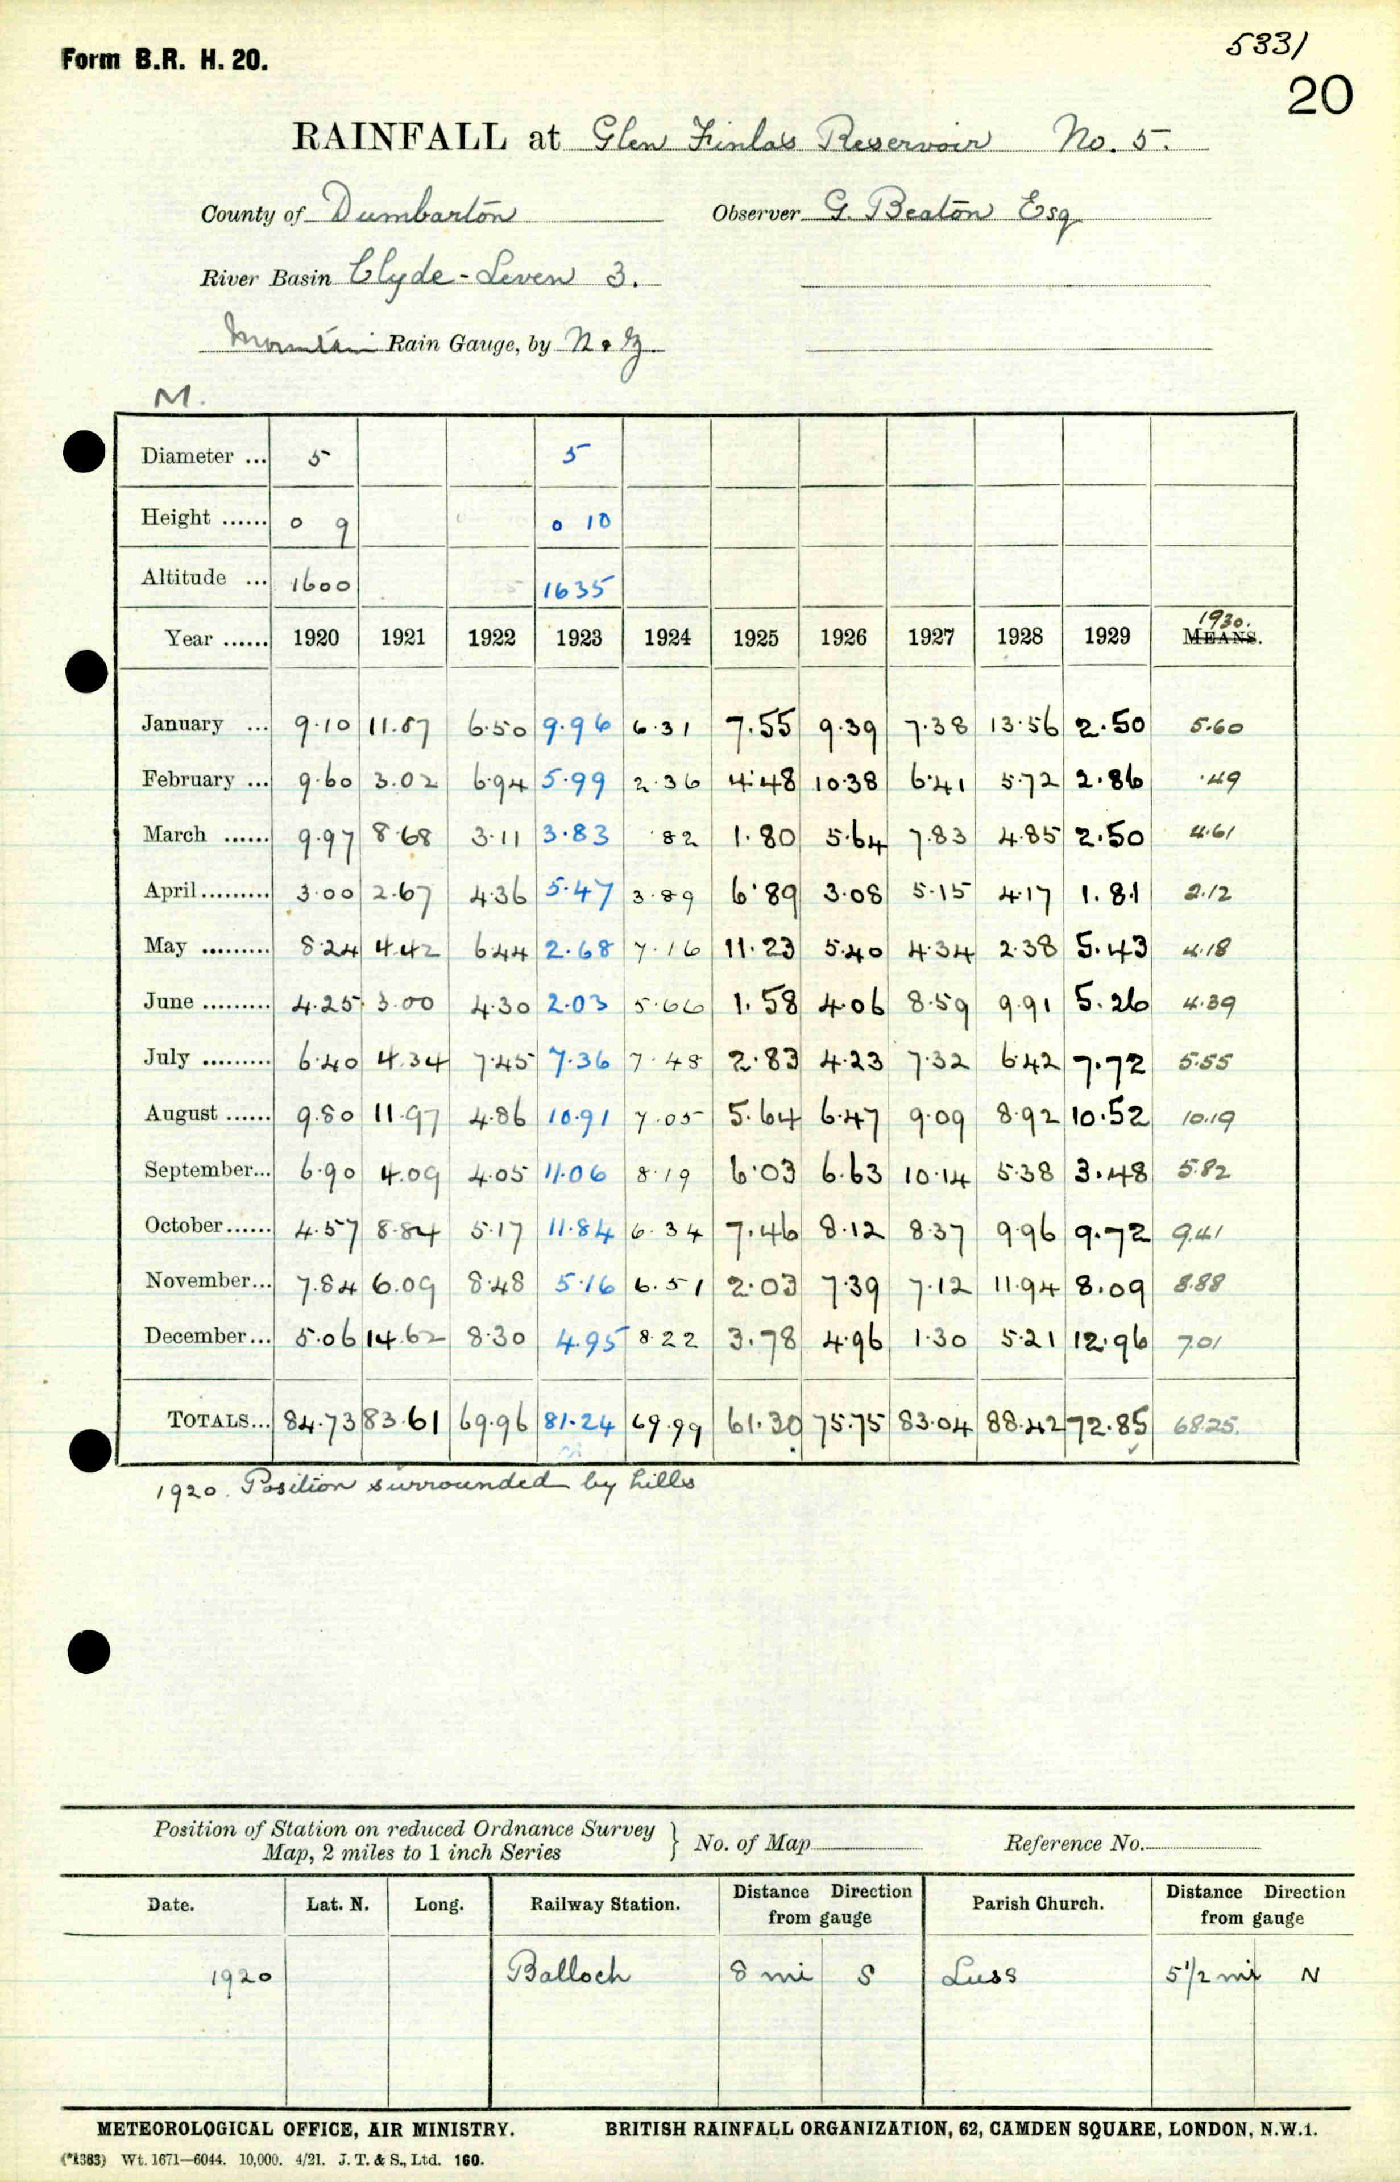 5331
Form B.R. H. 20.
20
RAINFALL at Glen Finlas Reservoir No. 5.
County of Dumbarton Observer G. Beaton Esq
River Basin Clyde-Leven 3.
Mountain Rain Gauge, by N & Z
M.
Diameter ... 5 5
Height ...... 0 9 0 10
Altitude ... 1600 1635
1930.
Year ...... 1920 1921 1922 1923 1924 1925 1926 1927 1928 1929 MEANS.
January ... 9.10 11.87 6.50 9.96 6.31 7.55 9.39 7.38 13.56 2.50 5.60
February ... 9.60 3.02 6.94 5.99 2.36 4.48 10.38 6.41 5.72 2.86 .49
March ...... 9.97 8.68 3.11 3.83 .82 1.80 5.64 7.83 4.85 2.50 4.61
April......... 3.00 2.67 4.36 5.47 3.89 6.89 3.08 5.15 4.17 1.81 2.12
May ......... 8.24 4.42 6.44 2.68 7.16 11.23 5.40 4.34 2.38 5.43 4.18
June ......... 4.25 3.00 4.30 2.03 5.66 1.58 4.06 8.59 9.91 5.26 4.39
July ......... 6.40 4.34 7.45 7.36 7.48 2.83 4.23 7.32 6.42 7.72 5.55
August ...... 9.80 11.97 4.86 10.91 7.05 5.64 6.47 9.09 8.92 10.52 10.19
September... 6.90 4.09 4.05 11.06 8.19 6.03 6.63 10.14 5.38 3.48 5.82
October...... 4.57 8.84 5.17 11.84 6.34 7.46 8.12 8.37 9.96 9.72 9.41
November... 7.84 6.09 8.48 5.16 6.51 2.03 7.39 7.12 11.94 8.09 8.88
December... 5.06 14.62 8.30 4.95 8.22 3.78 4.96 1.30 5.21 12.96 7.01
TOTALS... 84.73 83.61 69.96 81.24 69.99 61.30 75.75 83.04 88.42 72.85 68.25.
1920. Position surrounded by hills
Position of Station on reduced Ordnance Survey
Map, 2 miles to 1 inch Series } No. of Map Reference No.
Date. Lat. N. Long. Railway Station. Distance Direction from gauge Parish Church. Distance Direction from gauge
1920 Balloch 8 mi S Luss 5 1/2 mi N
METEOROLOGICAL OFFICE, AIR MINISTRY. BRITISH RAINFALL ORGANIZATION, 62, CAMDEN SQUARE, LONDON, N.W.1.
(*1383) Wt. 1671—6044. 10,000. 4/21. J. T. & S., Ltd. 160.